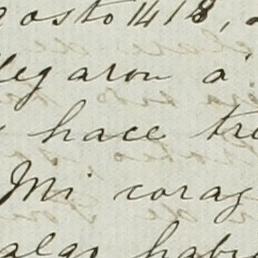 gosto 1418,
legaron a
hace tre
Mi corag
algo habi